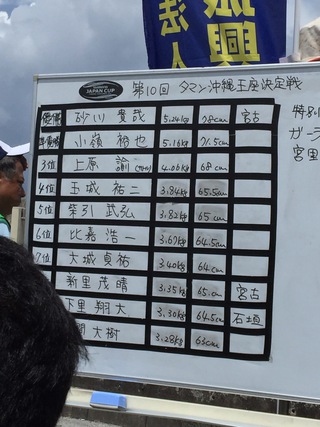 興
法人
JAPAN CUP
第10回 タマン沖縄王座決定戦
優勝 砂川 貴哉 5.24kg 宮古
準優勝 小嶺 裕也 5.16kg 71.5cm
3位 上原 諭 4.06kg 68cm
4位 玉城 祐二 3.84kg 65.5cm
5位 柴引 武弘 3.82kg 65cm
6位 比嘉 浩一 3.67kg 64.5cm
7位 大城 貞祐 3.40kg 64cm
新里 茂晴 3.35kg 65cm 宮古
下里 翔大 3.30kg 64.5cm 石垣
大樹 3.28kg 63cm
特別
ガーラ
宮里